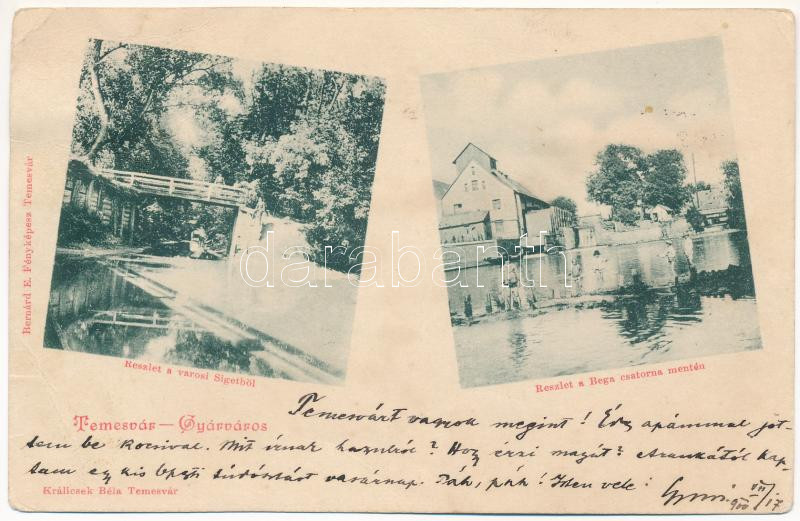 Bernárd E. Fényképesz Temesvár
darabanth
Reszlet a varosi Sigetböl
Reszlet a Bega csatorna mentén
Temesvár—Gyárváros
Temesvárt vagyok megint! Édes apámmal jöt-
tem be kocsival. Mit írnak hazulról? Hogy érzi magát? Arankától kap-
tam egy kis bpesti tudósítást vasárnap. Páh, páh! Isten vele!
900 VII/17
Králicsek Béla Temesvár